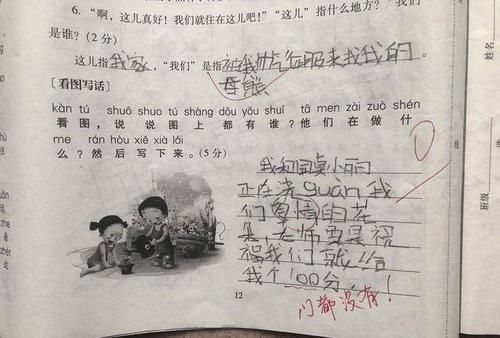 6. “啊，这儿真好！我们就住在这儿吧！”“这儿”指什么地方？“我们”
是谁？（2 分）
这儿指我家，“我们”是指被我帅气征服来找我的
母熊。
［看图写话］
kàn tú shuō shuo tú shàng dōu yǒu shuí tā men zài zuò shén
看图，说说图上都有谁？他们在做什
me rán hòu xiě xià lái
么？然后写下来。（5 分）
我和同桌小丽
正在浇guàn我
们爱情的花
朵，老师要是祝
福我们就
我个100分，
门都没有！
0
12
姓名
班级
线